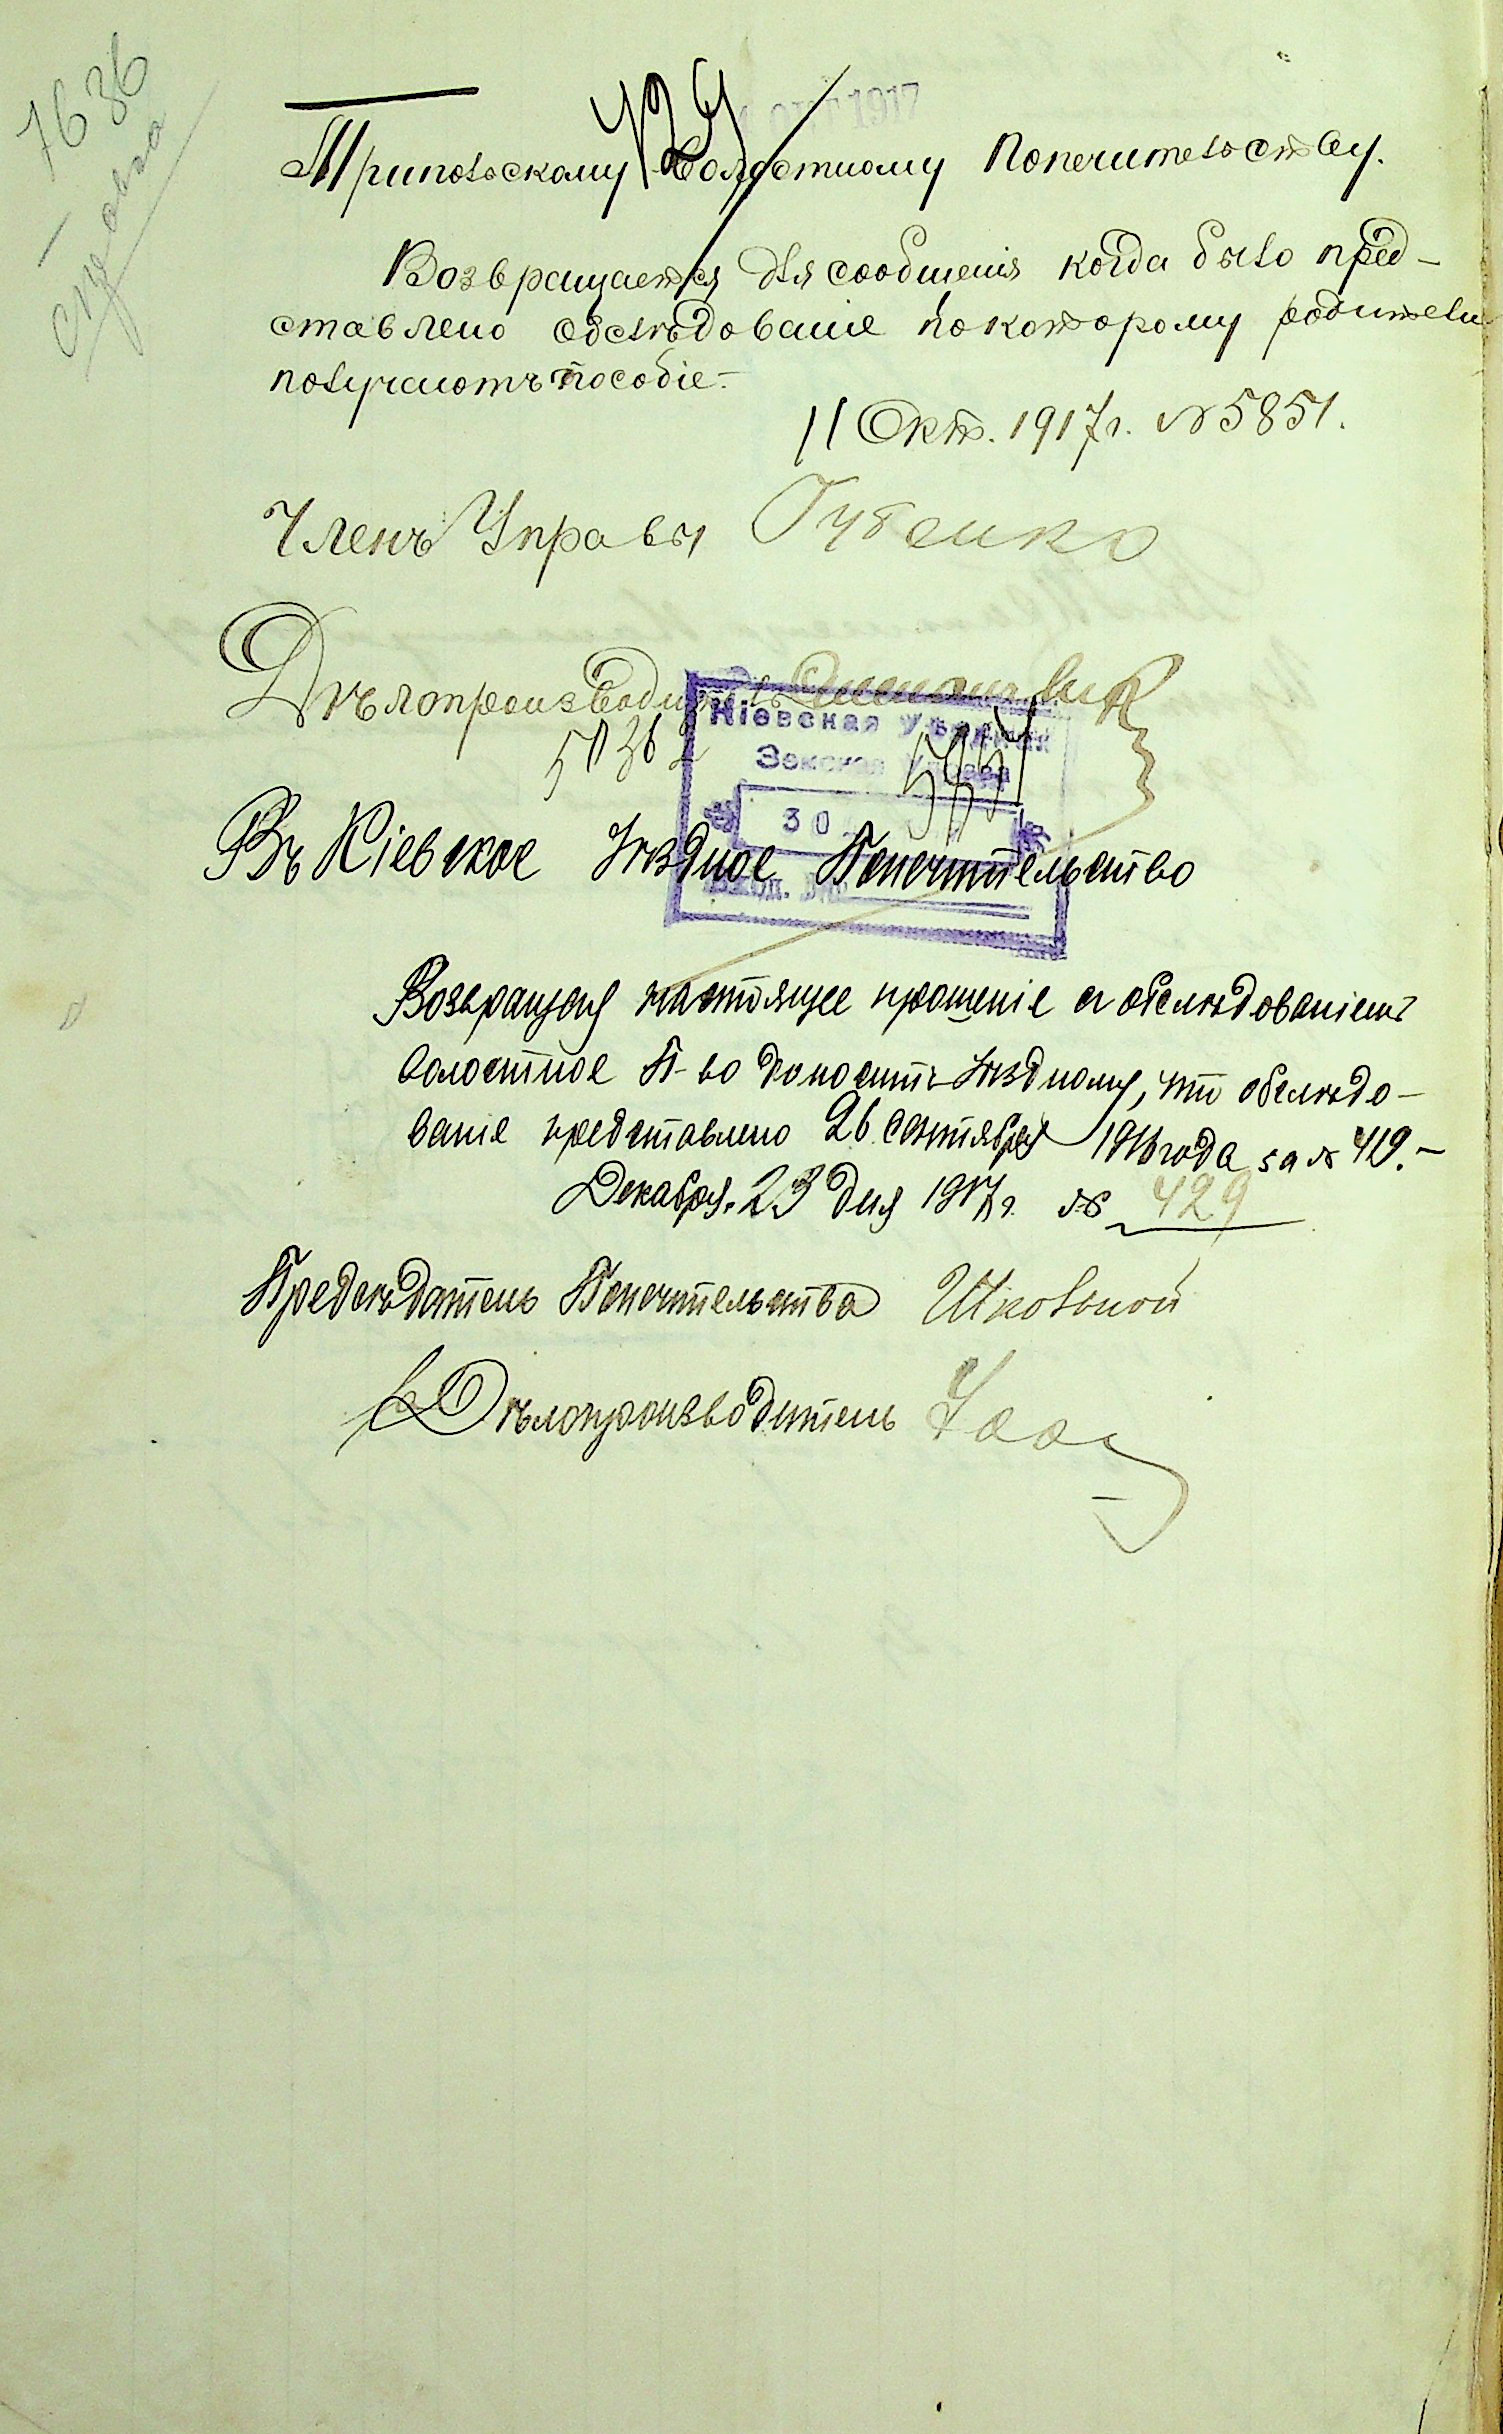 7636
справка
429
ОКТ 1917
Трипольскому Волостному Попечительству.
Возвращается для сообщенія когда было пред-
ставлено обслѣдованіе по которому родители
получаютъ пособіе.-
11 Окт. 1917 г. № 5851.
Членъ Управы Губенко
Дѣлопроизводитель
Кіевская Уѣздная
Земская Управа
30
Вход. №
Въ Кіевское Уѣздное Попечительство
Возвращая настоящее прошеніе съ обслѣдованіемъ
Волостное П-во доноситъ Уѣздному, что обслѣдо-
ваніе представлено 26 Сентября 1916 года за № 419.-
Декабря 23 дня 1917 г. № 429
Предсѣдатель Попечительства Шковыной
Дѣлопроизводитель